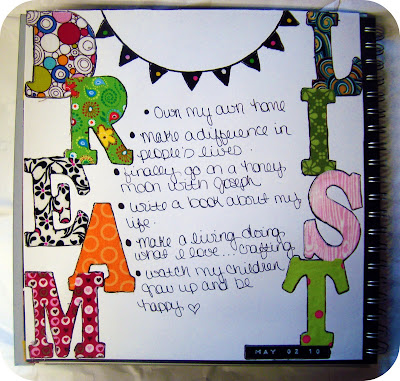 DREAM
LIST
• Own my own home
• make a difference in
people's lives.
• finally go on a honey
moon with Joseph
• write a book about my
life.
• make a living doing
what I love... crafting
• watch my children
grow up and be
happy ♡
MAY 02 10